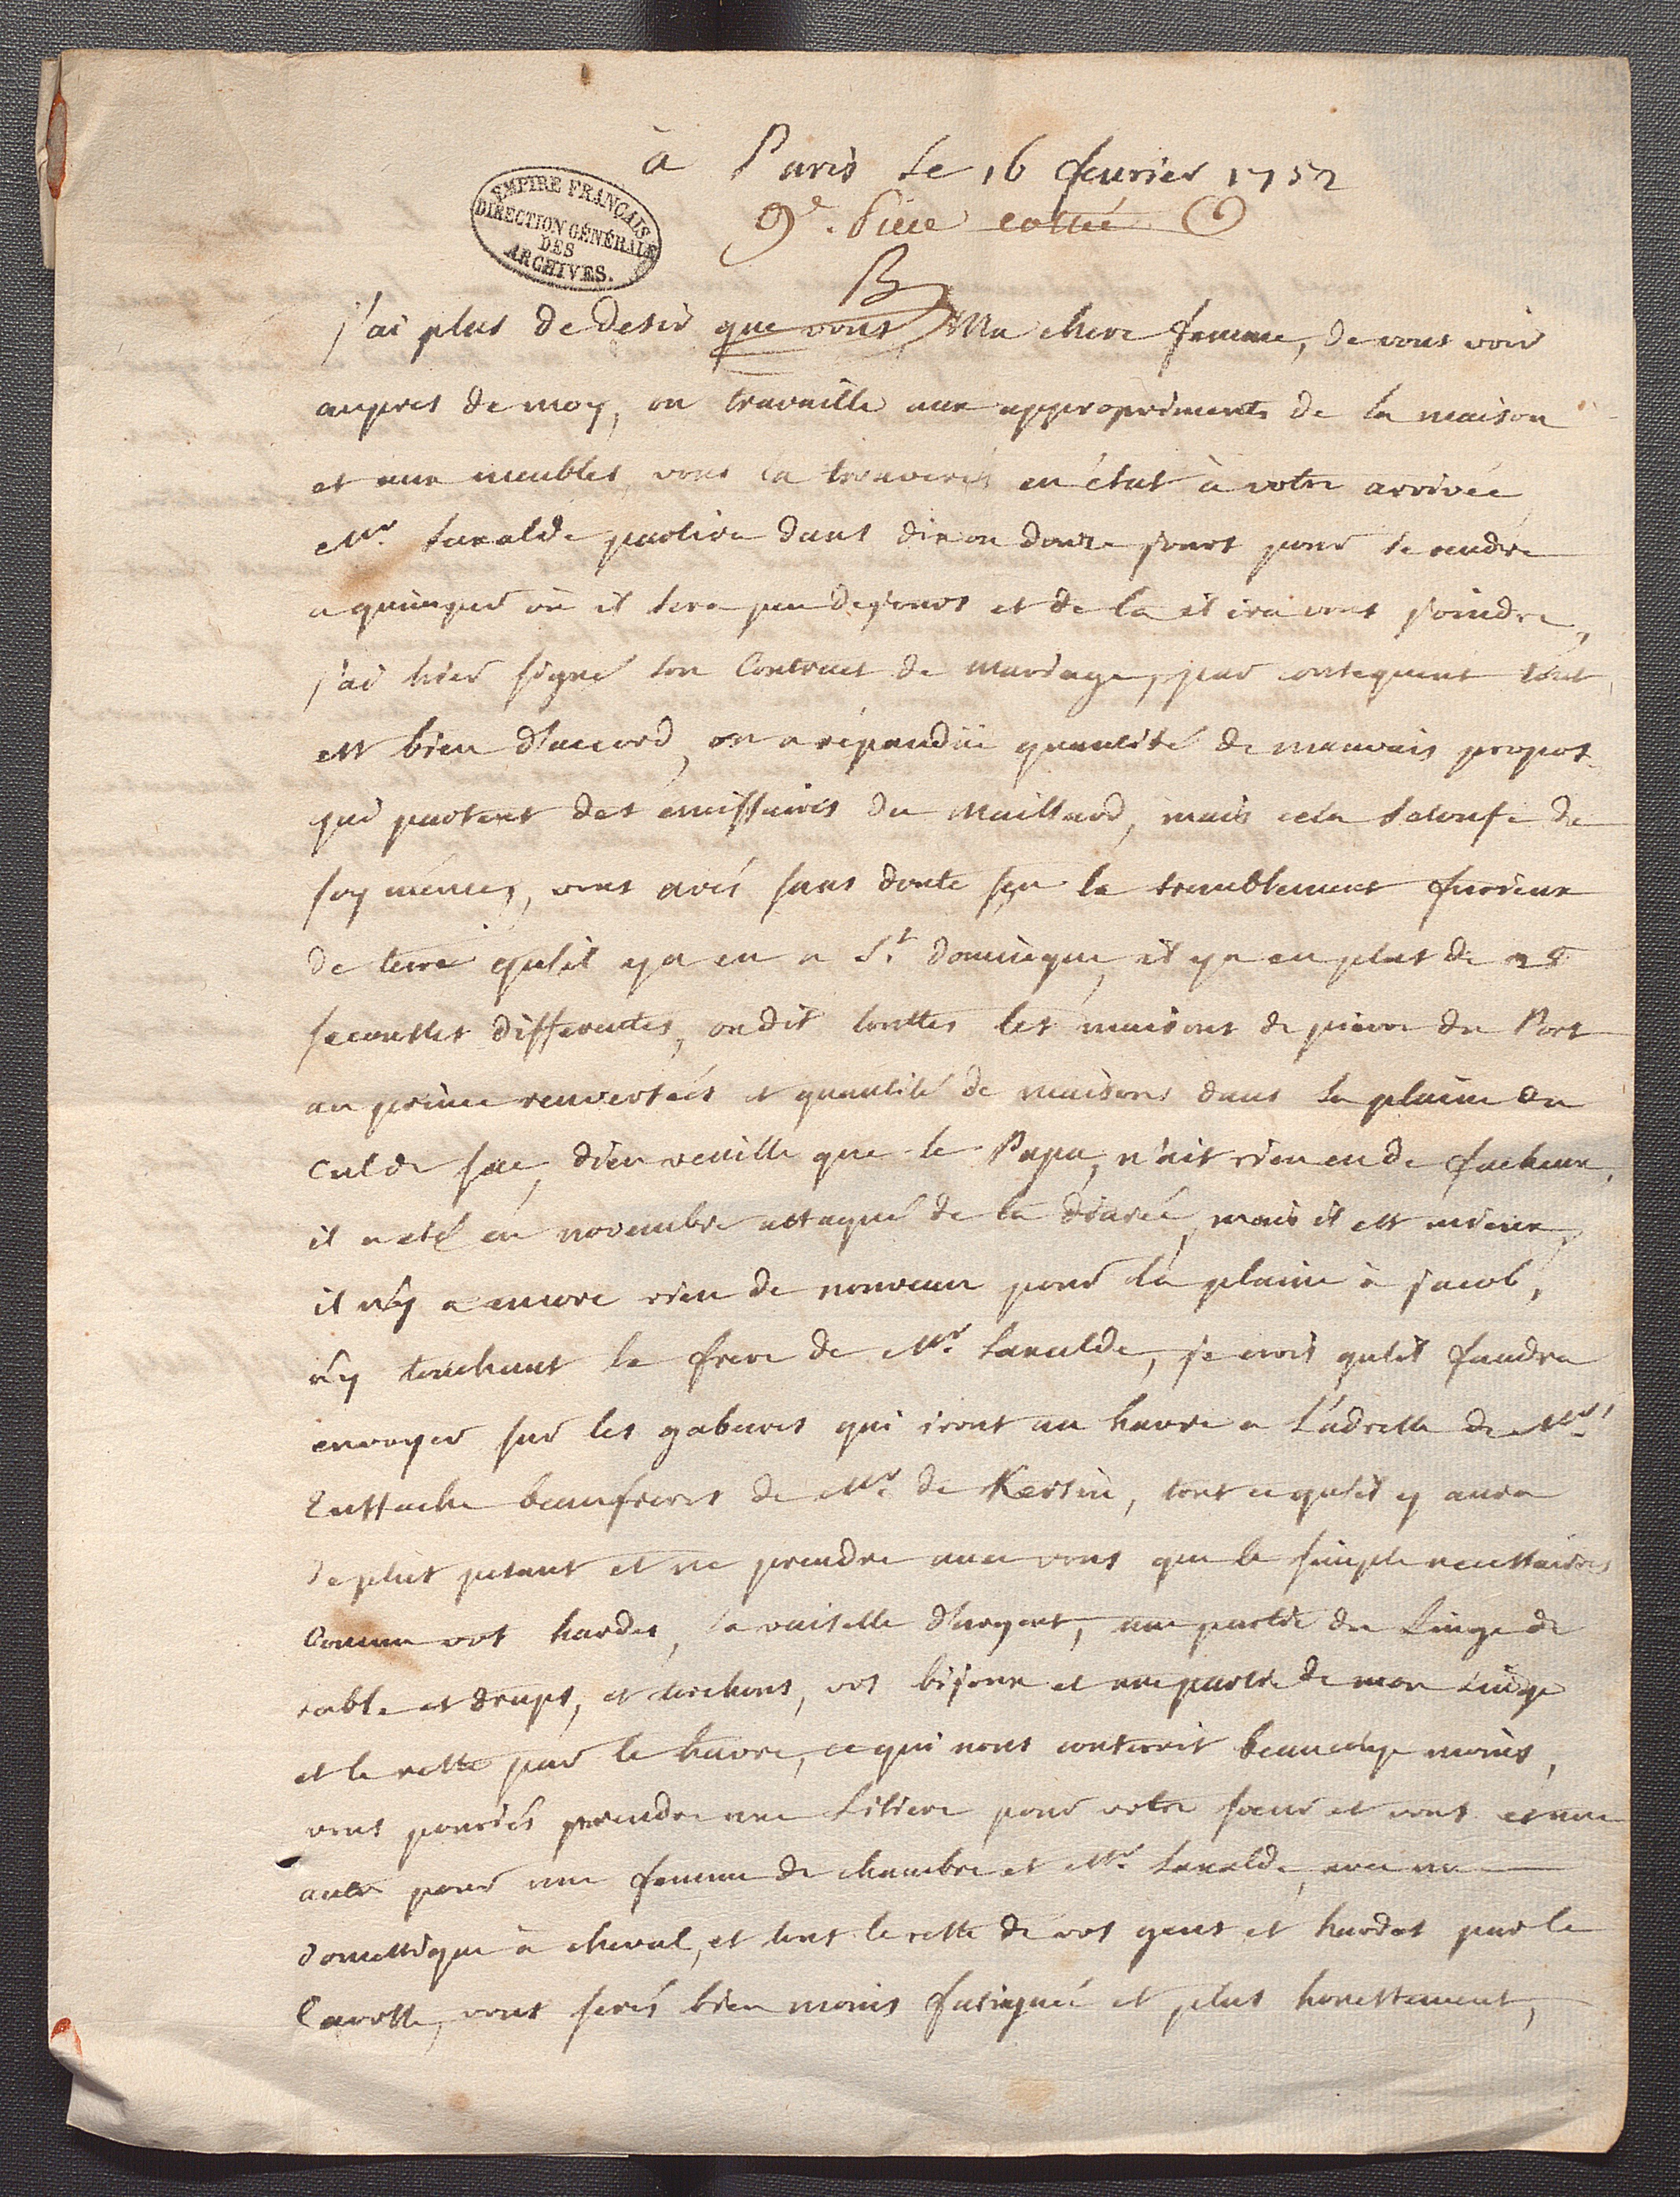 à Paris le 16 fevrier 1752
EMPIRE FRANÇAIS
DIRECTION GÉNÉRALE
DES
ARCHIVES.
9e. Piece cottée
B
j'ai plus de desir que vous Ma chere femme, de vous voir
aupres de moy, on travaille aux appropriments de la maison
et aux meubles, vous la trouverés en état à votre arrivée
Mr. Lavalde partira dans dix ou douze jours pour se rendre
a quimper où il sera peu de jours et de la il ira vous joindre,
j'ai hier signé son Contract de mariage, par consequent tout
est bien d'accord, on a répandüe quantité de mauvais propos
qui partent des émissaires du Maillard, mais cela se
soy même, vous avés sans doute sçu le tremblement furieux
de terre qu'il y a eu a St. domingue, il y a eu plus de
secousses differentes, on dit touttes les maisons de pierre du Port
au prince renversées et quantité de maisons dans la plaine du
Cul de sac, dieu veuille que le Papa, n'ait rien eu de facheux,
il a eté en novembre attaqué de la diarée, mais il est mieux,
il n'y a encore rien de nouveau pour la plaine à jacob,
n'y touchant le frere de Mr. Lavalde, je crois qu'il faudra
envoyer sur les gabares qui iront au havre a L'adresse de Mrs.
Eustache beaufreres de Mr. de Kersin, tout ce qu'il y aura
de plus pesant et ne prendre avec vous que le simple necessaires
Comme vos hardes, la vaiselle d'argent, une partie du Linge de
table et draps, et torchons, vos bijoux et une partie de mon Linge
et le reste par le havre, ce qui nous couteroit beaucoup moins,
vous pourrés prendre une Litiere pour votre soeur et vous et une
autre pour une femme de chambre et Mr. Lavalde, avec un
domestique à cheval, et tout le reste de vos gens et hardes par le
Carosse, vous serés bien moins fatiguée et plus honestement,